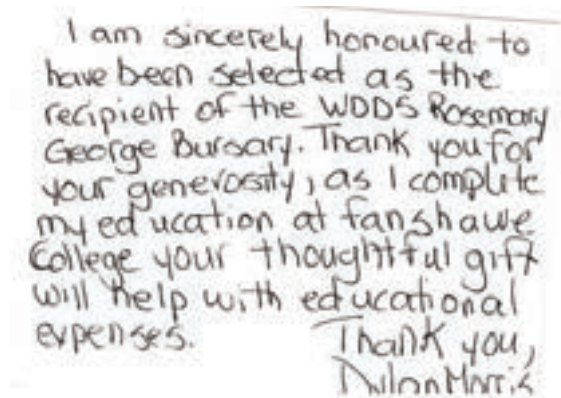 I am sincerely honoured to
have been selected as the
recipient of the WDDS Rosemary
George Bursary. Thank you for
your generosity, as I complete
my education at fanshawe
College your thoughtful gift
will help with educational
expenses.
Thank you,
Dylan Morris